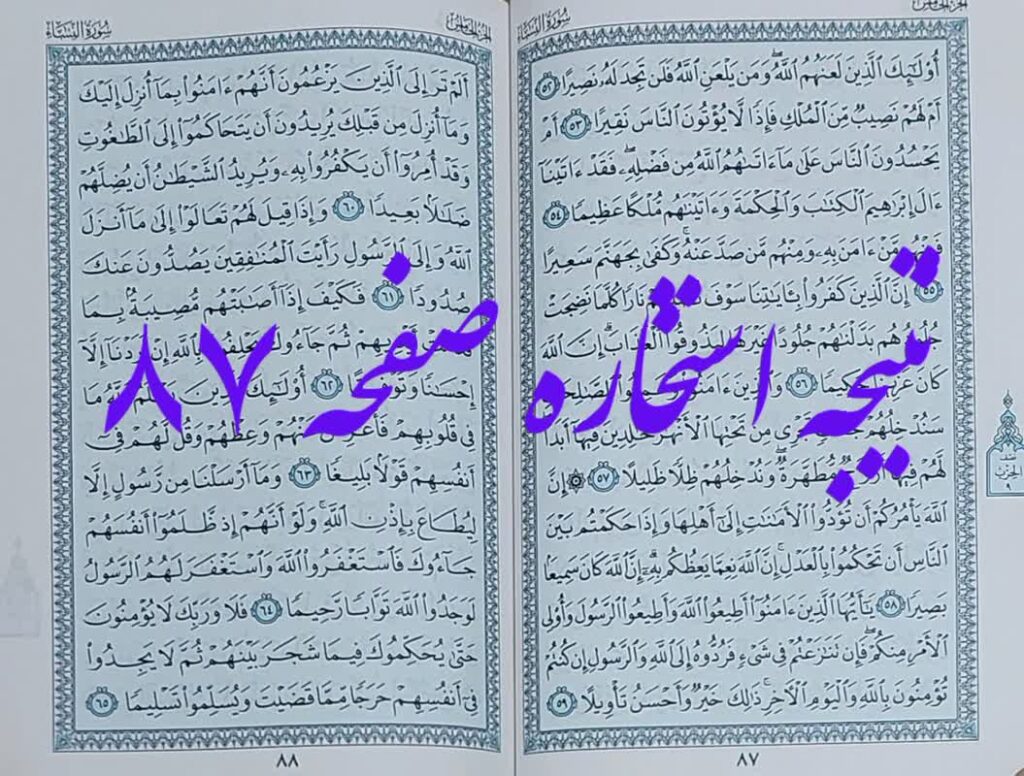 الجزء الخامس
سورة النساء
أُو۟لَٰٓئِكَ ٱلَّذِينَ لَعَنَهُمُ ٱللَّهُ ۖ وَمَن يَلْعَنِ ٱللَّهُ فَلَن تَجِدَ لَهُۥ نَصِيرًا ٥٢
أَمْ لَهُمْ نَصِيبٌ مِّنَ ٱلْمُلْكِ فَإِذًا لَّا يُؤْتُونَ ٱلنَّاسَ نَقِيرًا ٥٣ أَمْ
يَحْسُدُونَ ٱلنَّاسَ عَلَىٰ مَآ ءَاتَىٰهُمُ ٱللَّهُ مِن فَضْلِهِۦ ۖ فَقَدْ ءَاتَيْنَآ
ءَالَ إِبْرَٰهِيمَ ٱلْكِتَٰبَ وَٱلْحِكْمَةَ وَءَاتَيْنَٰهُم مُّلْكًا عَظِيمًا ٥٤
فَمِنْهُم مَّنْ ءَامَنَ بِهِۦ وَمِنْهُم مَّن صَدَّ عَنْهُ ۚ وَكَفَىٰ بِجَهَنَّمَ سَعِيرًا
٥٥ إِنَّ ٱلَّذِينَ كَفَرُوا۟ بِـَٔايَٰتِنَا سَوْفَ نُصْلِيهِمْ نَارًا كُلَّمَا نَضِجَتْ
جُلُودُهُم بَدَّلْنَٰهُمْ جُلُودًا غَيْرَهَا لِيَذُوقُوا۟ ٱلْعَذَابَ ۗ إِنَّ ٱللَّهَ
كَانَ عَزِيزًا حَكِيمًا ٥٦ وَٱلَّذِينَ ءَامَنُوا۟ وَعَمِلُوا۟ ٱلصَّٰلِحَٰتِ
سَنُدْخِلُهُمْ جَنَّٰتٍ تَجْرِى مِن تَحْتِهَا ٱلْأَنْهَٰرُ خَٰلِدِينَ فِيهَآ أَبَدًا
لَّهُمْ فِيهَآ أَزْوَٰجٌ مُّطَهَّرَةٌ ۖ وَنُدْخِلُهُمْ ظِلًّا ظَلِيلًا ٥٧ ۞ إِنَّ
ٱللَّهَ يَأْمُرُكُمْ أَن تُؤَدُّوا۟ ٱلْأَمَٰنَٰتِ إِلَىٰٓ أَهْلِهَا وَإِذَا حَكَمْتُم بَيْنَ
ٱلنَّاسِ أَن تَحْكُمُوا۟ بِٱلْعَدْلِ ۚ إِنَّ ٱللَّهَ نِعِمَّا يَعِظُكُم بِهِۦٓ ۗ إِنَّ ٱللَّهَ كَانَ سَمِيعًۢا
بَصِيرًا ٥٨ يَٰٓأَيُّهَا ٱلَّذِينَ ءَامَنُوٓا۟ أَطِيعُوا۟ ٱللَّهَ وَأَطِيعُوا۟ ٱلرَّسُولَ وَأُو۟لِى
ٱلْأَمْرِ مِنكُمْ ۖ فَإِن تَنَٰزَعْتُمْ فِى شَىْءٍ فَرُدُّوهُ إِلَى ٱللَّهِ وَٱلرَّسُولِ إِن كُنتُمْ
تُؤْمِنُونَ بِٱللَّهِ وَٱلْيَوْمِ ٱلْءَاخِرِ ۚ ذَٰلِكَ خَيْرٌ وَأَحْسَنُ تَأْوِيلًا ٥٩
٨٧
الجزء الخامس
سورة النساء
أَلَمْ تَرَ إِلَى ٱلَّذِينَ يَزْعُمُونَ أَنَّهُمْ ءَامَنُوا۟ بِمَآ أُنزِلَ إِلَيْكَ
وَمَآ أُنزِلَ مِن قَبْلِكَ يُرِيدُونَ أَن يَتَحَاكَمُوٓا۟ إِلَى ٱلطَّٰغُوتِ
وَقَدْ أُمِرُوٓا۟ أَن يَكْفُرُوا۟ بِهِۦ وَيُرِيدُ ٱلشَّيْطَٰنُ أَن يُضِلَّهُمْ
ضَلَٰلًۢا بَعِيدًا ٦٠ وَإِذَا قِيلَ لَهُمْ تَعَالَوْا۟ إِلَىٰ مَآ أَنزَلَ
ٱللَّهُ وَإِلَى ٱلرَّسُولِ رَأَيْتَ ٱلْمُنَٰفِقِينَ يَصُدُّونَ عَنكَ
صُدُودًا ٦١ فَكَيْفَ إِذَآ أَصَٰبَتْهُم مُّصِيبَةٌۢ بِمَا
قَدَّمَتْ أَيْدِيهِمْ ثُمَّ جَآءُوكَ يَحْلِفُونَ بِٱللَّهِ إِنْ أَرَدْنَآ إِلَّآ
إِحْسَٰنًا وَتَوْفِيقًا ٦٢ أُو۟لَٰٓئِكَ ٱلَّذِينَ يَعْلَمُ ٱللَّهُ مَا
فِى قُلُوبِهِمْ فَأَعْرِضْ عَنْهُمْ وَعِظْهُمْ وَقُل لَّهُمْ فِىٓ
أَنفُسِهِمْ قَوْلًۢا بَلِيغًا ٦٣ وَمَآ أَرْسَلْنَا مِن رَّسُولٍ إِلَّا
لِيُطَاعَ بِإِذْنِ ٱللَّهِ ۚ وَلَوْ أَنَّهُمْ إِذ ظَّلَمُوٓا۟ أَنفُسَهُمْ
جَآءُوكَ فَٱسْتَغْفَرُوا۟ ٱللَّهَ وَٱسْتَغْفَرَ لَهُمُ ٱلرَّسُولُ
لَوَجَدُوا۟ ٱللَّهَ تَوَّابًا رَّحِيمًا ٦٤ فَلَا وَرَبِّكَ لَا يُؤْمِنُونَ
حَتَّىٰ يُحَكِّمُوكَ فِيمَا شَجَرَ بَيْنَهُمْ ثُمَّ لَا يَجِدُوا۟
فِىٓ أَنفُسِهِمْ حَرَجًا مِّمَّا قَضَيْتَ وَيُسَلِّمُوا۟ تَسْلِيمًا ٦٥
٨٨
نتیجه استخاره صفحه ۸۷